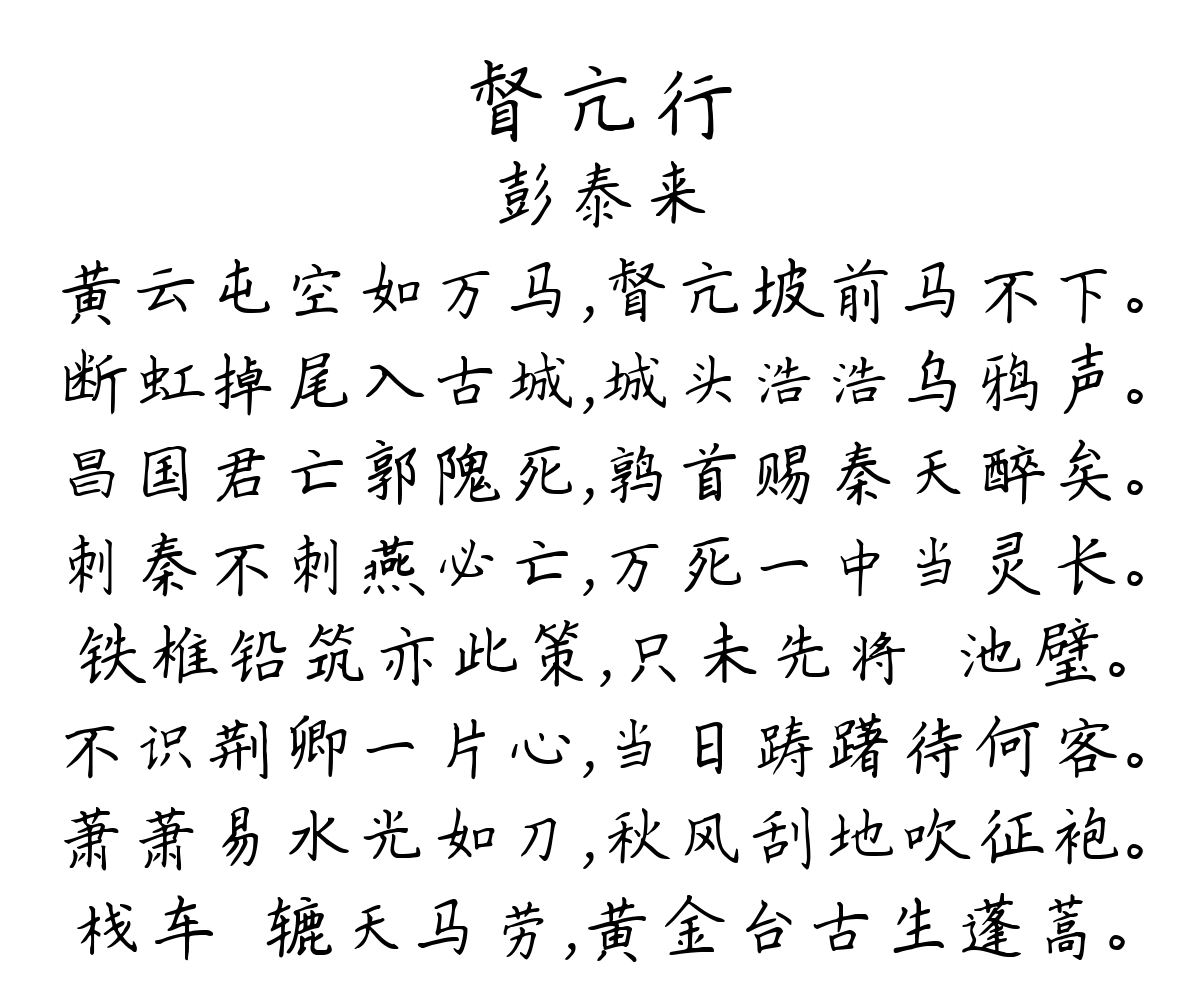 督亢行
彭泰来
黄云屯空如万马,督亢坡前马不下。
断虹掉尾入古城,城头浩浩乌鸦声。
昌国君亡郭隗死,鹑首赐秦天醉矣。
刺秦不刺燕必亡,万死一中当灵长。
铁椎铅筑亦此策,只未先将 池璧。
不识荆卿一片心,当日踌躇待何客。
萧萧易水光如刀,秋风刮地吹征袍。
栈车 辘天马劳,黄金台古生蓬蒿。